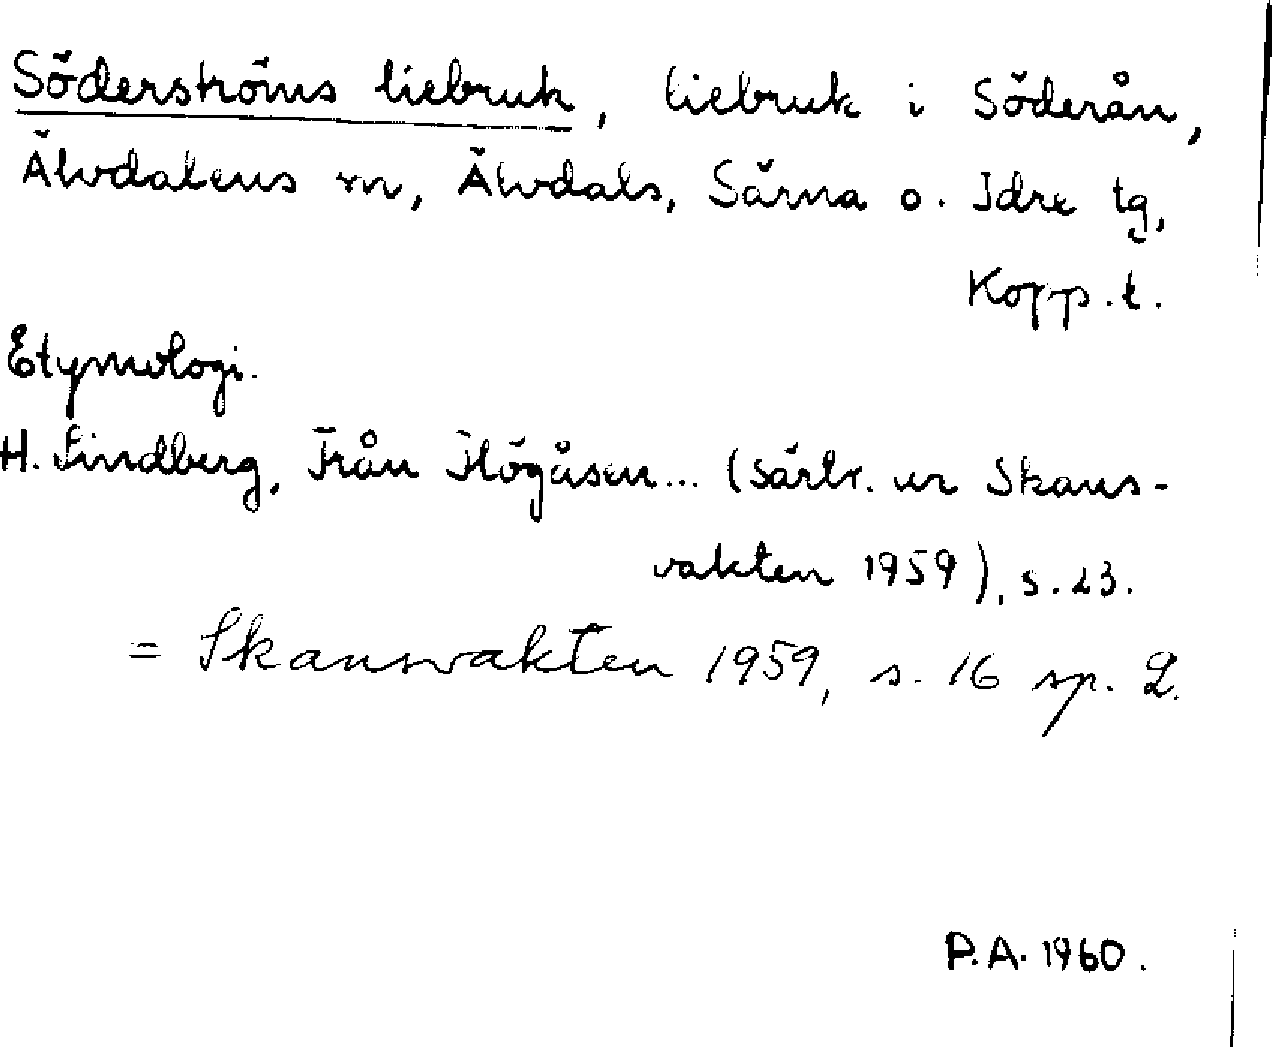 Söderströms liebruk, liebruk i Söderån,
Älvdalens sn, Älvdals, Särna o. Idre tg,
Kopp. l.
Etymologi.
H. Lindberg, Från Högåsen... (särtr. ur Skans-
vakten 1959), s. 23.
= Skansvakten 1959, s. 16 sp. 2.
P.A. 1960.